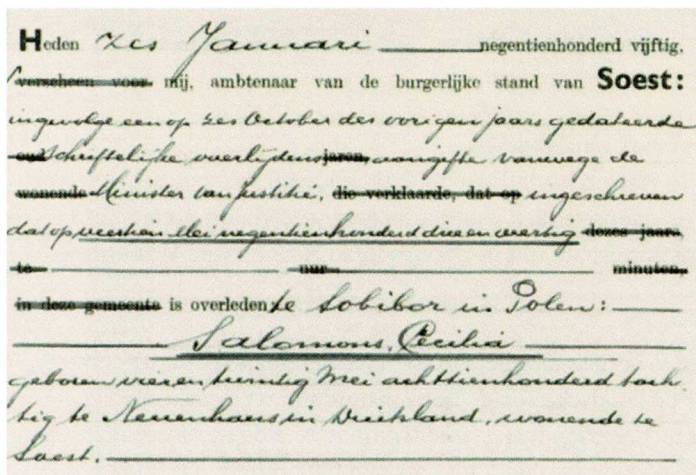 Heden zes Januari negentienhonderd vijftig,
verscheen voor mij, ambtenaar van de burgerlijke stand van Soest:
ingevolge een op zes October des vorigen jaars gedateerde
oud schriftelijke overlijdens jaren, aangifte vanwege de
wonende Minister van Justitie, die verklaarde, dat op ingeschreven
dat op veertien Mei negentienhonderd drie en veertig dezes jaars,
te uur minuten,
in deze gemeente is overleden te Sobibor in Polen:
Salomons, Cecilia
geboren vier en twintig Mei achttienhonderd tach
tig te Neuenhaus in Duitsland, wonende te
Soest.